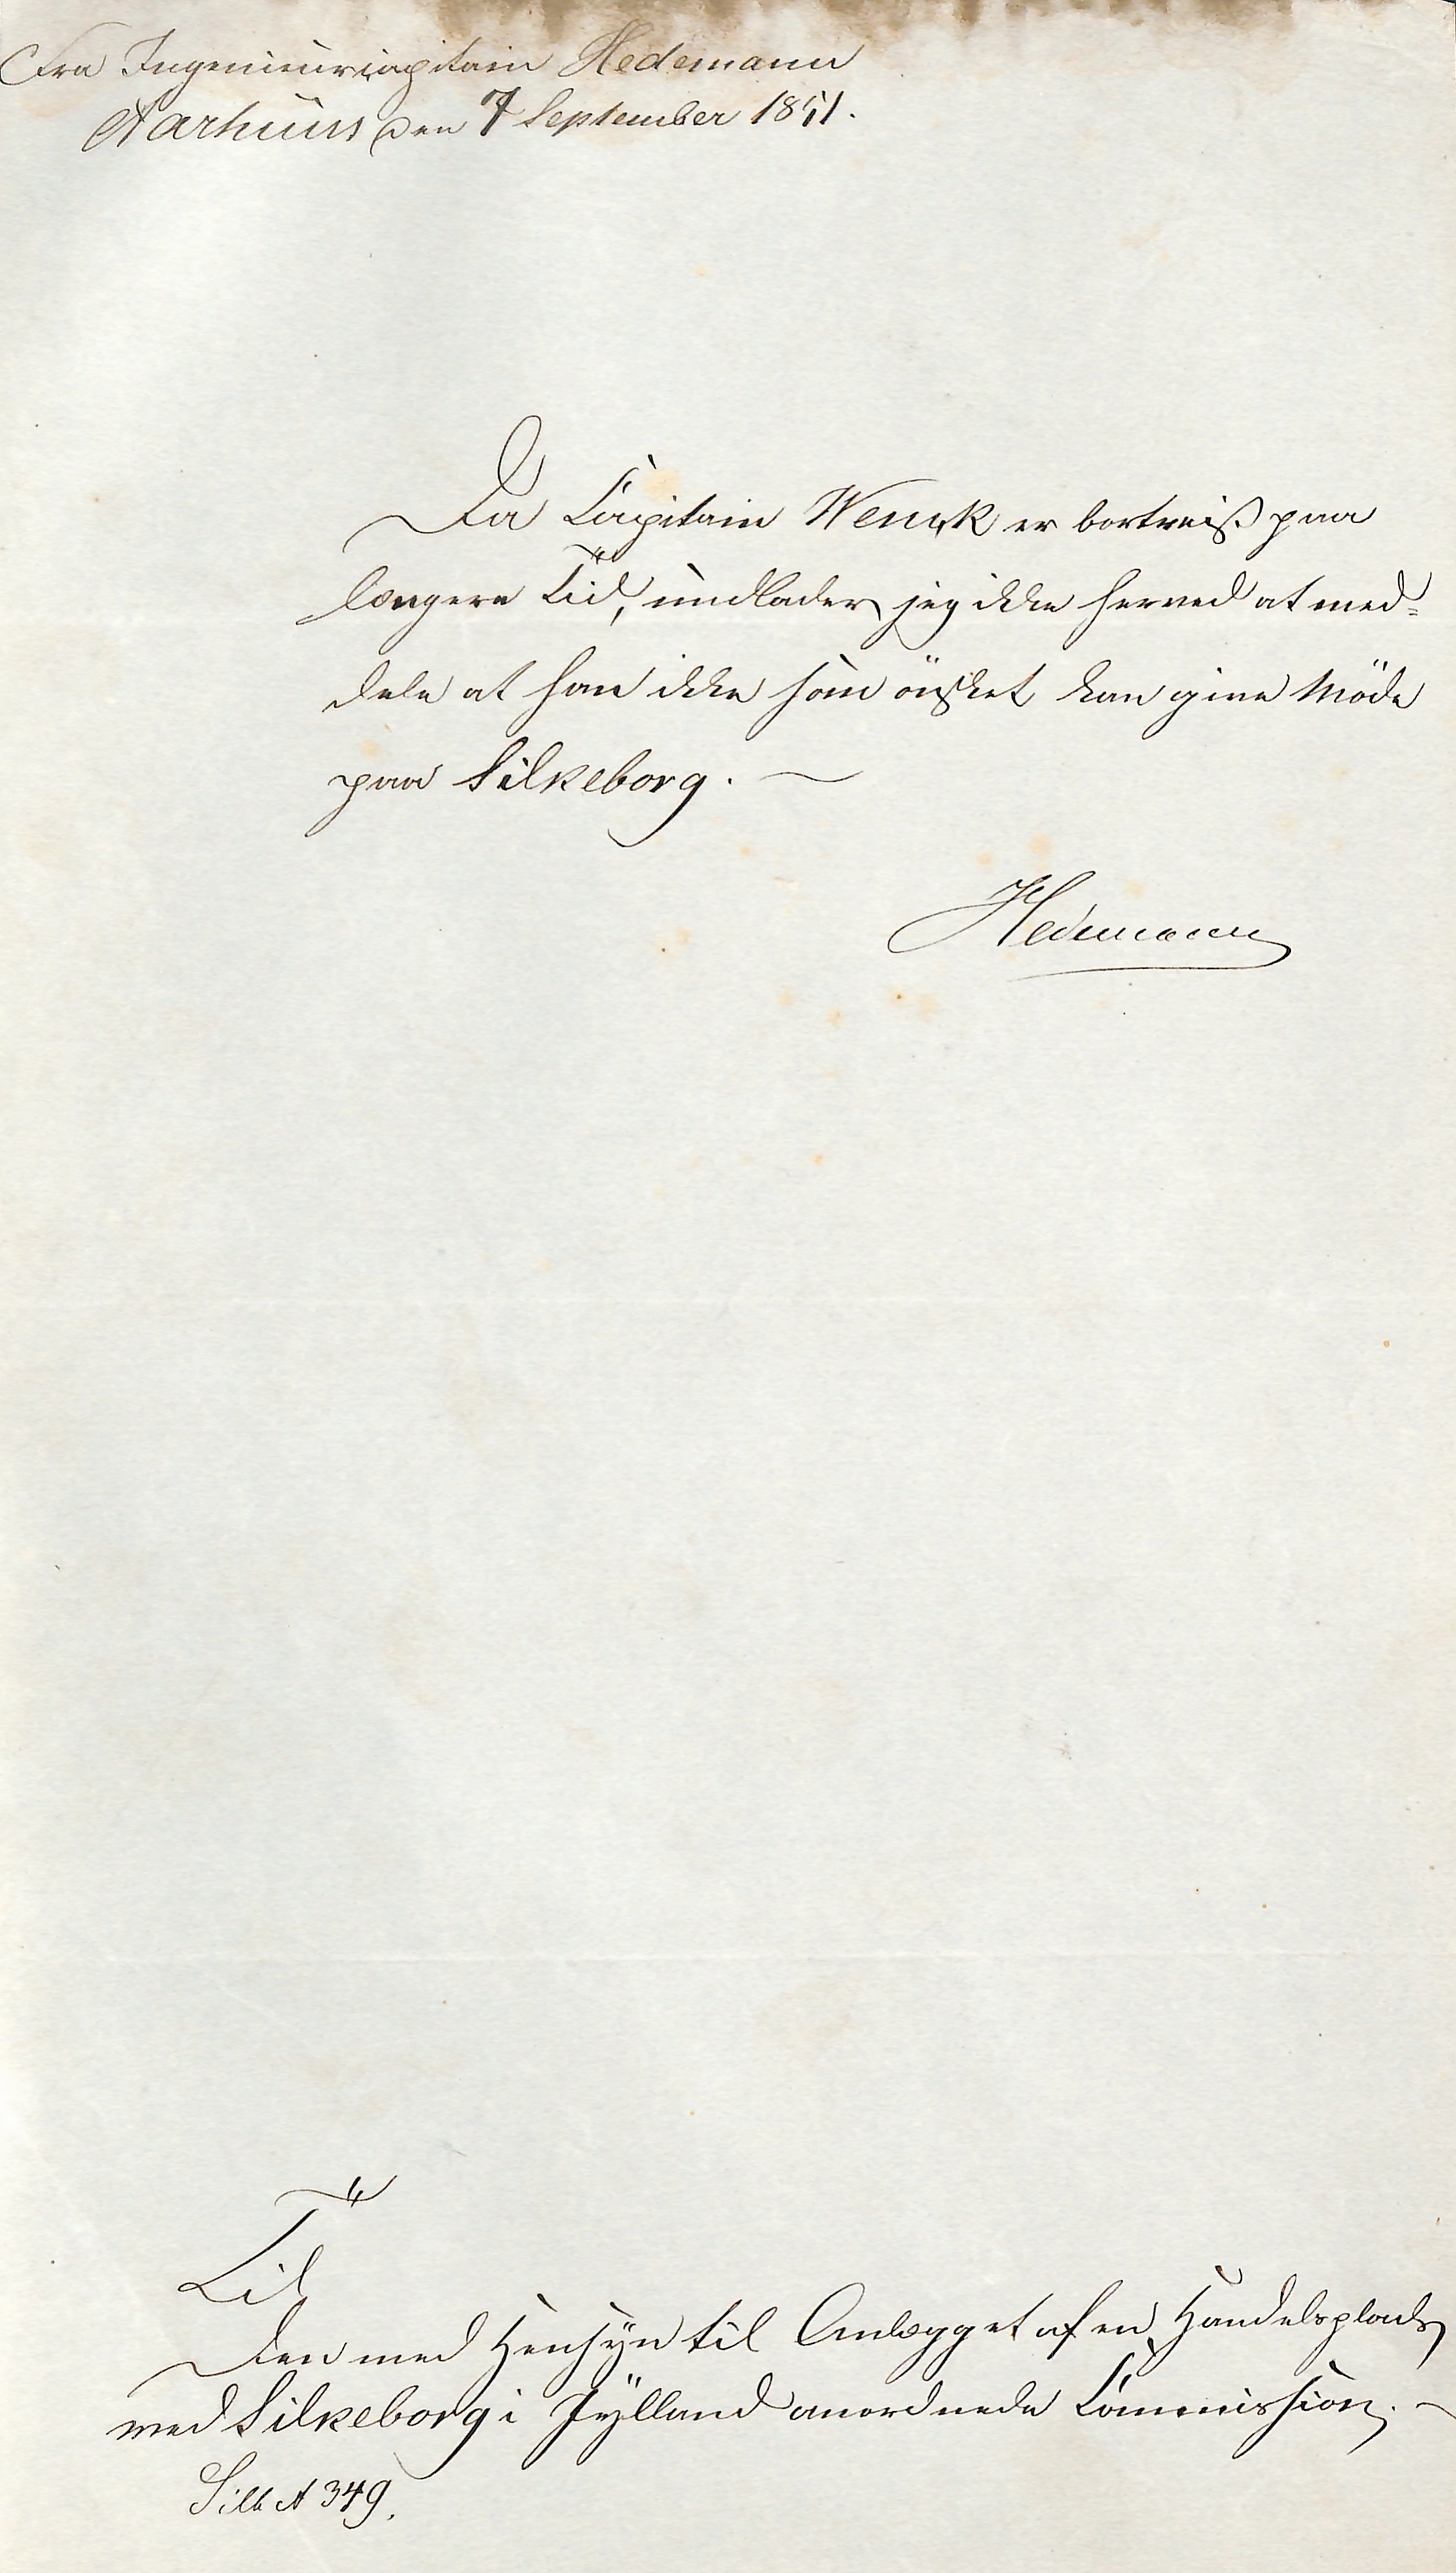 Fra Ingenieurcapitain Hedemann
Aarhuus den 7 September 1851.
Da Capitain Wenck er bortreist paa
længere Tid, undlader jeg ikke herved at med-
dele at han ikke som ønsket kan give Möde
paa Silkeborg.
Hedemann
Til
Den med Hensyn til Anlægget af en Handelsplads
ved Silkeborg i Jylland anordnede Commission.
Silk A 349.